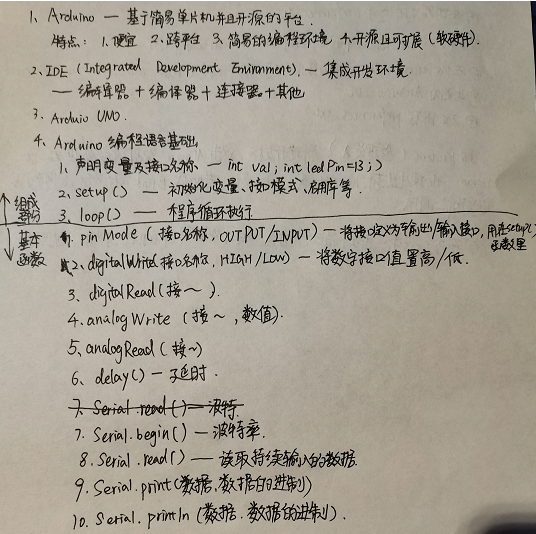 1、Arduino — 基于简易单片机并且开源的平台.
特点：1.便宜 2.跨平台 3.简易的编程环境 4.开源且可扩展(软硬件).
2、IDE (Integrated Development Environment). — 集成开发环境
— 编译器 + 连接器 + 其他
3. Arduio UNO.
4. Arduino 编程语言基础
1. 声明变量及接口名称 — int val; int ledPin=13;)
2. setup() — 初始化变量、接口模式、启用库等.
组成部份
3. loop() — 程序循环执行
基本函数
1. pinMode (接口名称, OUTPUT/INPUT) — 将接口定义为输出/输入接口, 用在setup()函数里
2、digitalWrite(接口名称, HIGH/LOW) — 将数字接口值置高/低.
3. digitalRead(接~).
4. analogWrite (接~, 数值).
5. analogRead (接~)
6、delay() — 延时.
7. Serial.read() — 波特.
7. Serial.begin() — 波特率.
8. Serial.read() — 读取持续输入的数据.
9. Serial.print(数据, 数据的进制)
10. Serial.println (数据. 数据的进制).